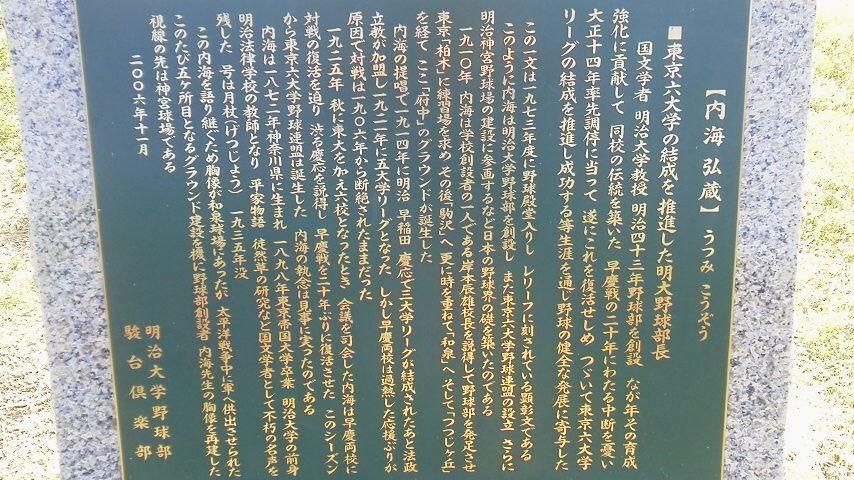 【内海 弘蔵】うつみ こうぞう
■東京六大学の結成を推進した明大野球部長
国文学者 明治大学教授 明治四十三年野球部を創設 なが年その育成
強化に貢献して 同校の伝統を築いた 早慶戦の二十年にわたる中断を憂い
大正十四年率先調停に当って 遂にこれを復活せしめ つづいて東京六大学
リーグの結成を推進し成功する等生涯を通じ野球の健全な発展に寄与した
この一文は一九七三年度に野球殿堂入りし レリーフに刻されている顕彰文である
このように内海は明治大学野球部を創設し また東京六大学野球連盟の設立 さらに
明治神宮野球場の建設に参画するなど日本の野球界の礎を築いたのである
一九一〇年 内海は学校創設者の一人である岸本辰雄校長を説得して野球部を発足させ
東京「柏木」に練習場を求め その後「駒沢」へ 更に時を重ねて「和泉」へ そして「つつじヶ丘」
を経て ここ「府中」のグラウンドが誕生した
内海の提唱で一九一四年に明治 早稲田 慶応で三大学リーグが結成されたあと法政
立教が加盟し一九二一年に五大学リーグとなった しかし早慶両校は過熱した応援ぶりが
原因で対戦は一九〇六年から断絶されたままだった
一九二五年 秋に東大をかえ六校となったとき 会議を司会した内海は早慶両校に
対戦の復活を迫り 渋る慶応を説得し 早慶戦を二十年ぶりに復活させた このシーズン
から東京六大学野球連盟は誕生した 内海の執念は見事に実ったのである
内海は一八七二年神奈川県に生まれ 一八九八年東京帝国大学卒業 明治大学の前身
明治法律学校の教師となり 平家物語 徒然草の研究など国文学者として不朽の名声を
残した 号は月杖(げつじょう) 一九三五年没
この内海を語り継ぐため胸像が和泉球場にあったが 太平洋戦争中に軍へ供出させられた
このたび五ヶ所目となるグラウンド建設を機に野球部創設者 内海先生の胸像を再建した
視線の先は神宮球場である
二〇〇六年十一月
明治大学野球部
駿台倶楽部